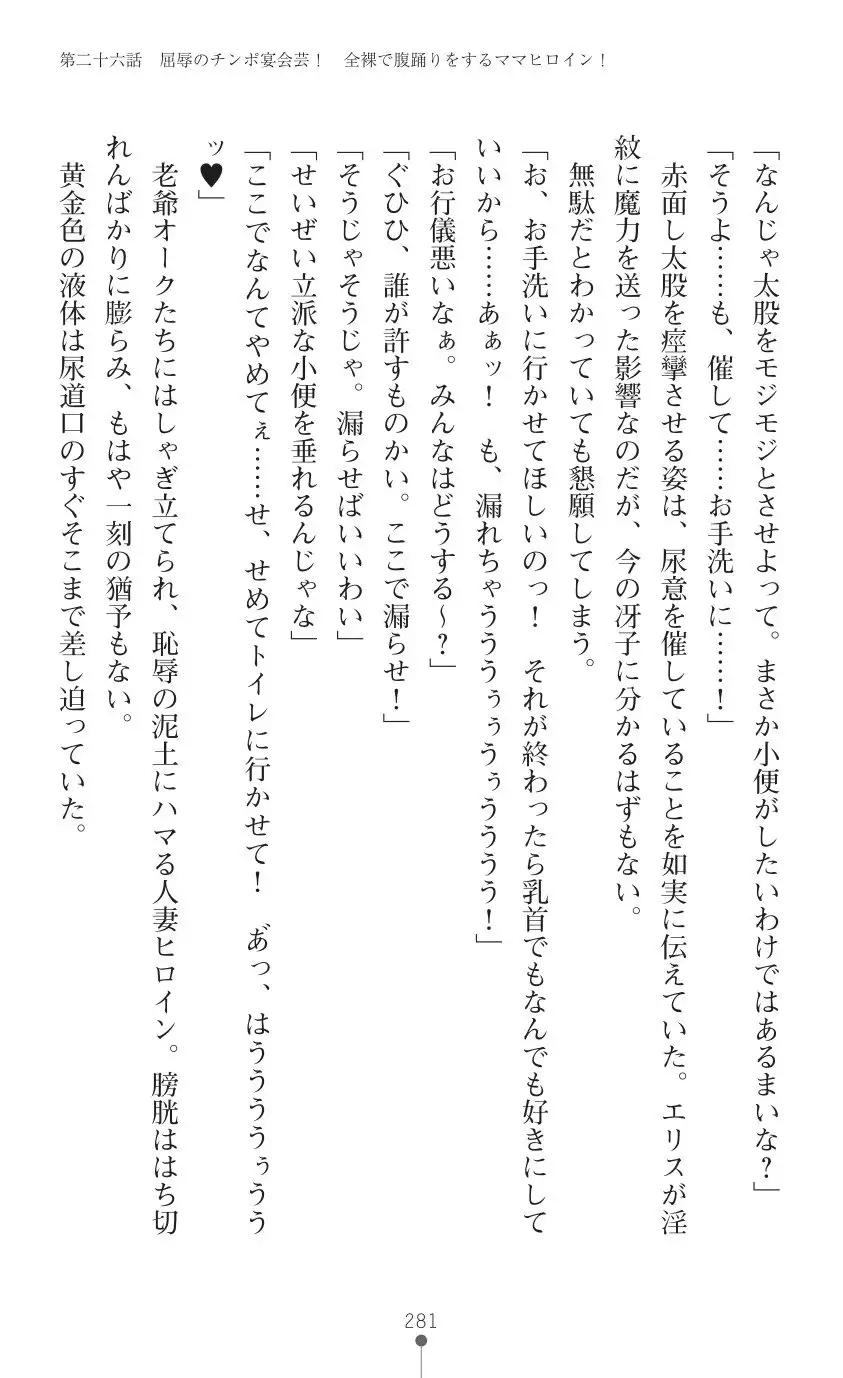 第二十六話　屈辱のチンポ宴会芸！　全裸で腹踊りをするママヒロイン！
「なんじゃ太股をモジモジとさせよって。まさか小便がしたいわけではあるまいな？」
「そうよ……も、催して……お手洗いに……！」
　赤面し太股を痙攣させる姿は、尿意を催していることを如実に伝えていた。エリスが淫
紋に魔力を送った影響なのだが、今の冴子に分かるはずもない。
　無駄だとわかっていても懇願してしまう。
「お、お手洗いに行かせてほしいのっ！　それが終わったら乳首でもなんでも好きにして
いいから……あぁッ！　も、漏れちゃうううぅぅうぅうううう！」
「お行儀悪いなぁ。みんなはどうする～？」
「ぐひひ、誰が許すものかい。ここで漏らせ！」
「そうじゃそうじゃ。漏らせばいいわい」
「せいぜい立派な小便を垂れるんじゃな」
「ここでなんてやめてぇ……せ、せめてトイレに行かせて！　あ゙っ、はうううううぅうう
ッ♥」
　老爺オークたちにはしゃぎ立てられ、恥辱の泥土にハマる人妻ヒロイン。膀胱ははち切
れんばかりに膨らみ、もはや一刻の猶予もない。
　黄金色の液体は尿道口のすぐそこまで差し迫っていた。
281